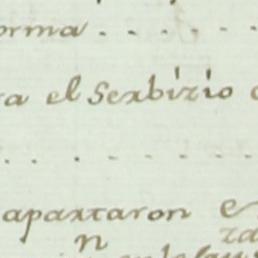 orma . . . . .
ra el Serbizio
. . . . . . . .
apartaron
n